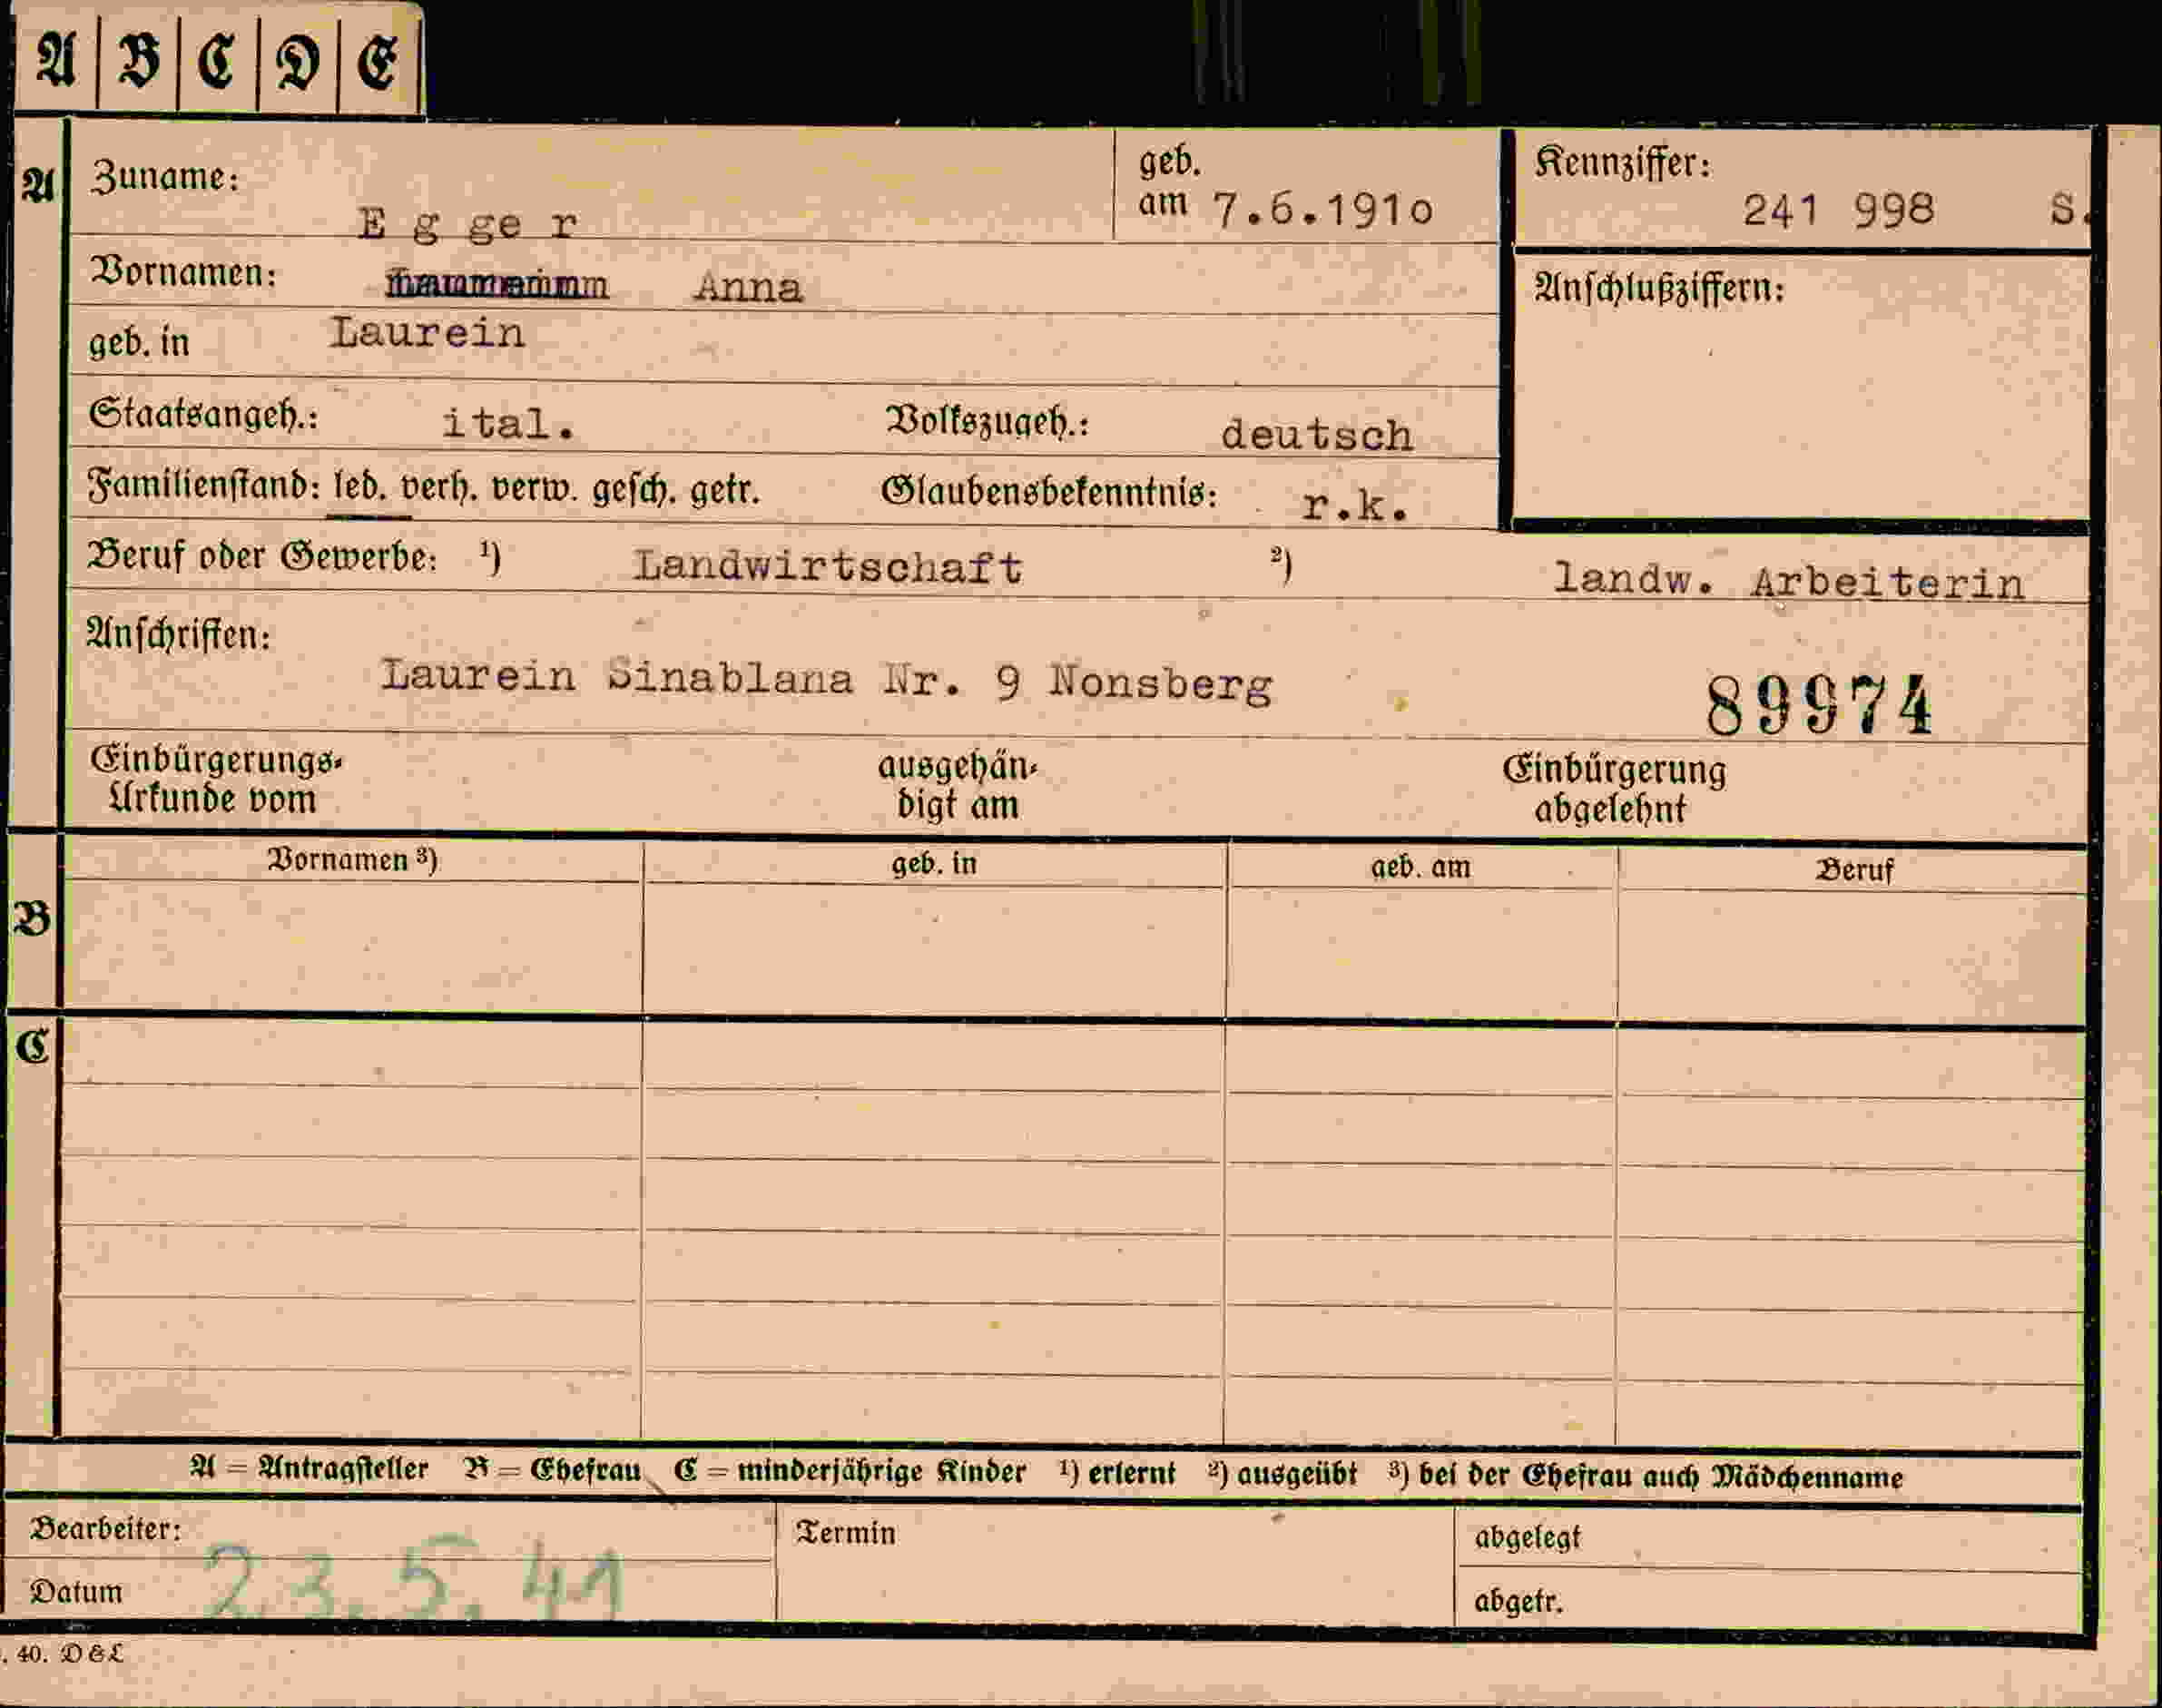 A B C D E
A Zuname: Egger geb. am 7.6.1910 Kennziffer: 241 998 S.
Vornamen: Anna Anschlußziffern:
geb. in Laurein
Staatsangeh.: ital. Volkszugeh.: deutsch
Familienstand: led. verh. verw. gesch. getr. Glaubensbekenntnis: r.k.
Beruf oder Gewerbe: ¹) Landwirtschaft ²) landw. Arbeiterin
Anschriften:
Laurein Sinablana Nr. 9 Nonsberg 89974
Einbürgerungs- ausgehän- Einbürgerung
Urkunde vom digt am abgelehnt
Vornamen ³) geb. in geb. am Beruf
B
C
A = Antragsteller B = Ehefrau C = minderjährige Kinder ¹) erlernt ²) ausgeübt ³) bei der Ehefrau auch Mädchenname
Bearbeiter: Termin abgelegt
Datum 23.5.41 abgetr.
. 40. D & L